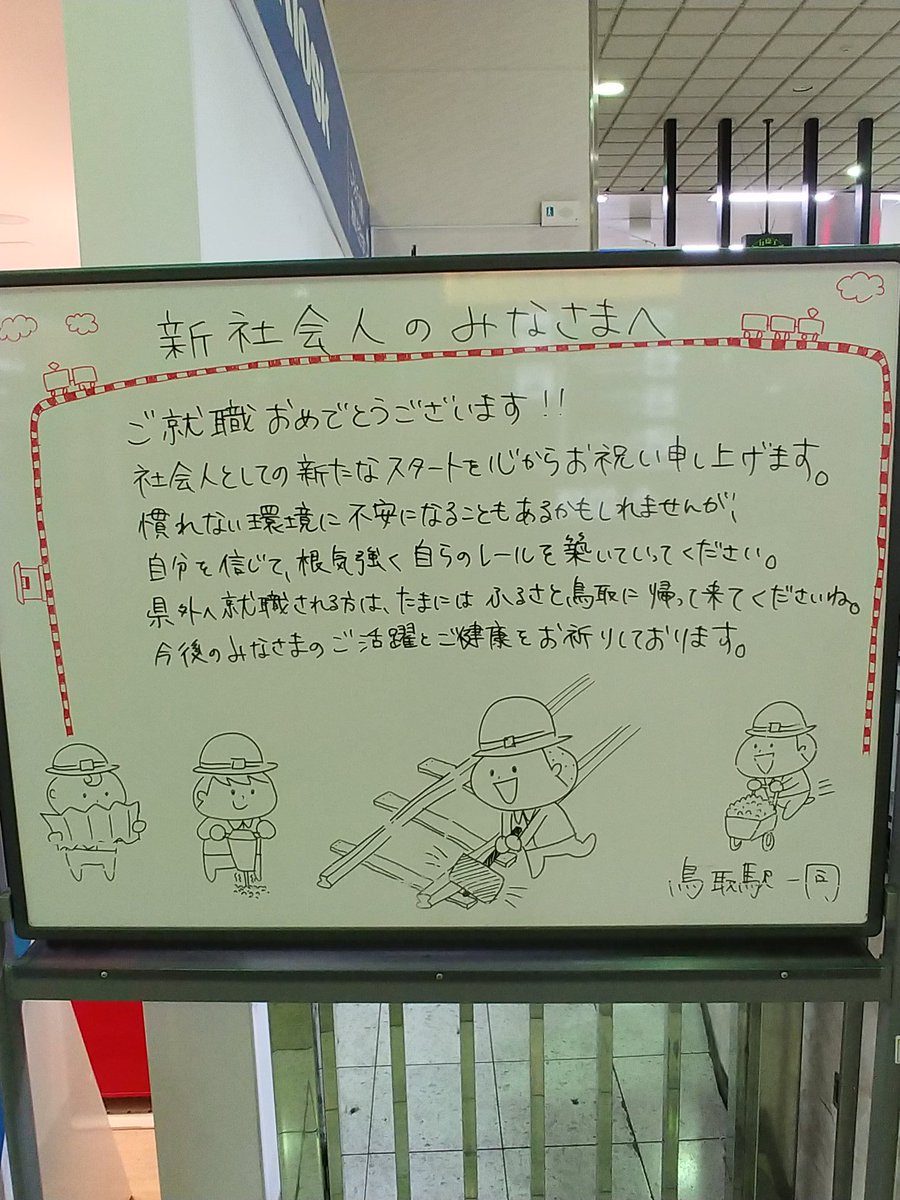 新社会人のみなさまへ
ご就職おめでとうございます!!
社会人としての新たなスタートを心からお祝い申し上げます。
慣れない環境に不安になることもあるかもしれませんが、
自分を信じて、根気強く自らのレールを築いていってください。
県外へ就職される方は、たまにはふるさと鳥取に帰って来てくださいね。
今後のみなさまのご活躍とご健康をお祈りしております。
鳥取駅一同